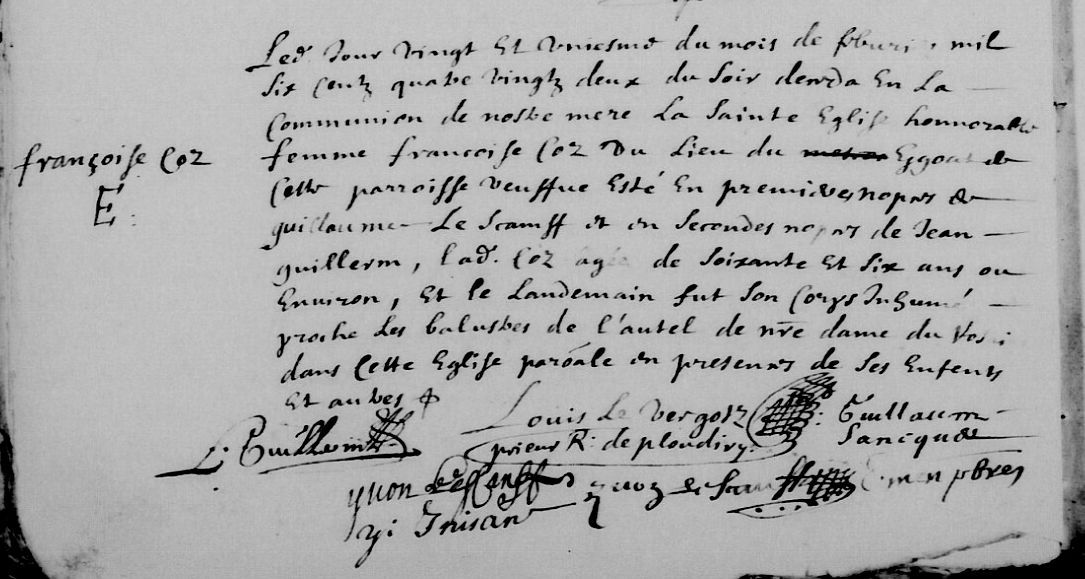 Led. Jour vingt et vniesme du mois de feburi mil
six centz quatre vingtz deux du soir deceda En La
Communion de nostre mere La Sainte Eglise honnorable
françoise Coz
femme francoise Coz Du Lieu du Eggoat de
E.
Cette parroisse veuffue Esté En premieres nopces de
guillaume Le Scanff et en secondes nopces de Jean
guillerm, lad. Coz agée de soixante et six ans ou
Enuiron, Et le Landemain fut son Corps Inhumé
proche des balustres de l'autel de nre dame du Rosai
dans Cette Eglise paroâle en presences de ses Enfents
Et autres
L. Guillerm
Louis Le Vergoz
Guillaum
prieur R. de ploudiry.
yuon Le Scanff
yuoz Le Scanff
pbres
yi Inisan